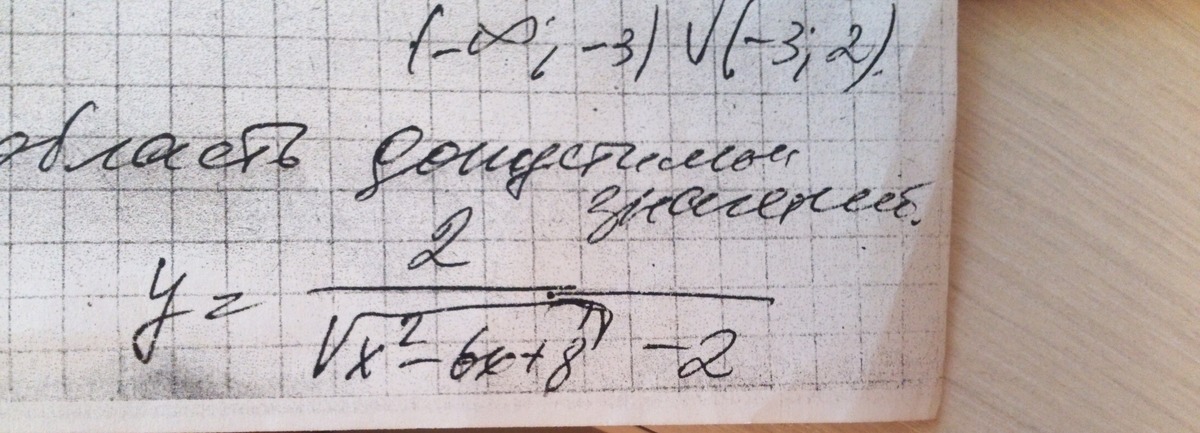 (-∞; -3) V (-3; 2).
область допустимых
значений.
y = 2
√x²-6x+8 -2